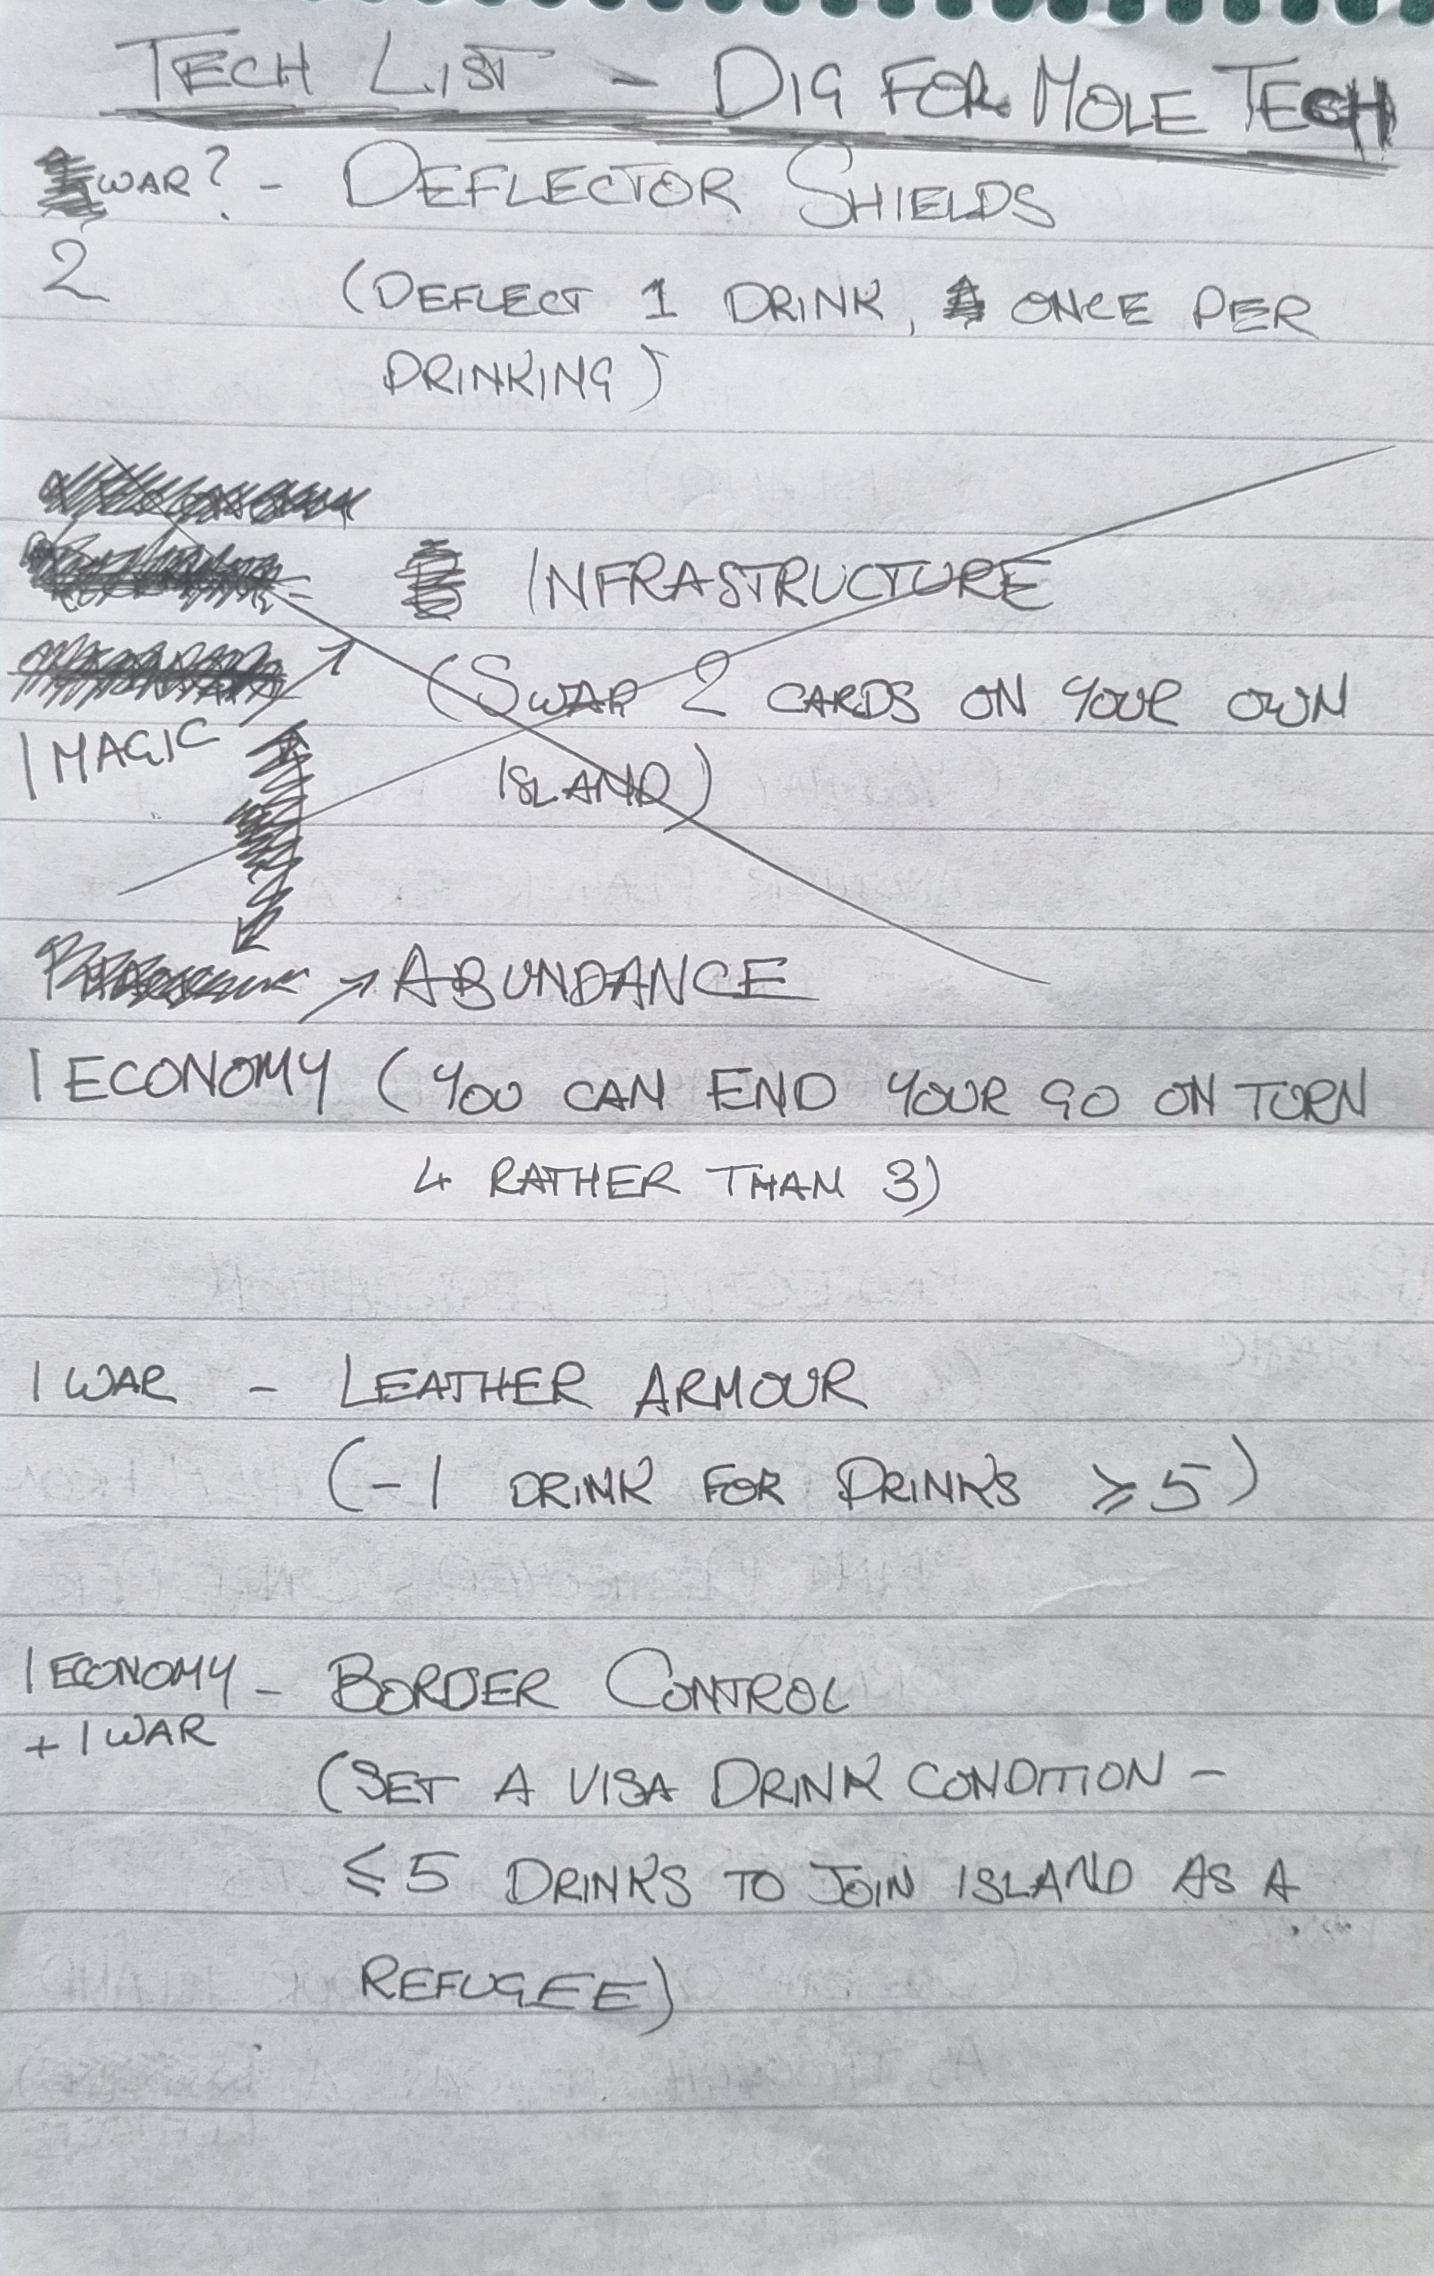 TECH LIST - DIG FOR MOLE TECH
WAR? - DEFLECTOR SHIELDS
2 (DEFLECT 1 DRINK, ONCE PER
DRINKING)
INFRASTRUCTURE
(SWAP 2 CARDS ON YOUR OWN
1 MAGIC
ISLAND)
ABUNDANCE
1 ECONOMY (YOU CAN END YOUR GO ON TURN
4 RATHER THAN 3)
1 WAR - LEATHER ARMOUR
(-1 DRINK FOR DRINKS ⩾5)
1 ECONOMY - BORDER CONTROL
+ 1 WAR
(SET A VISA DRINK CONDITION -
⩽5 DRINKS TO JOIN ISLAND AS A
REFUGEE)